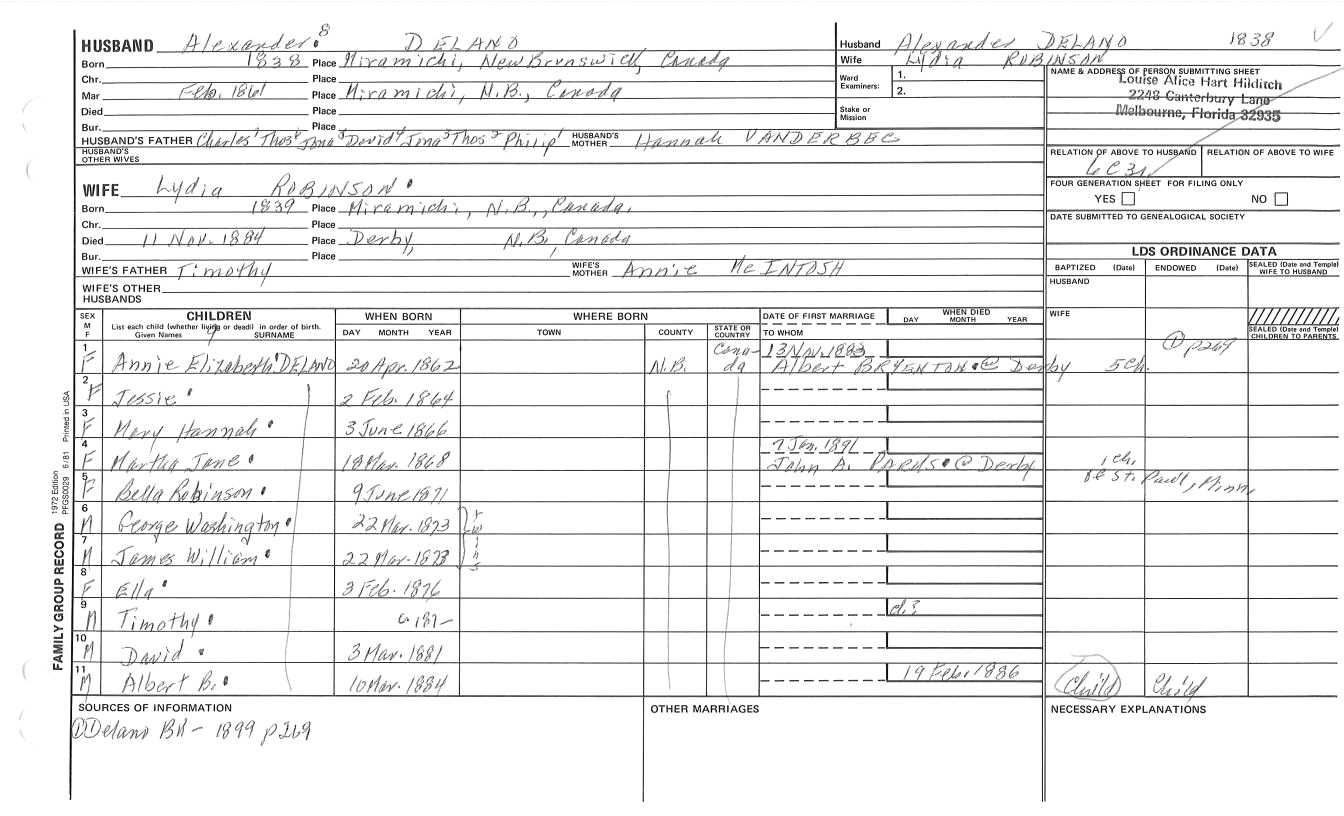 HUSBAND Alexander 8 DELANO
Born 1838 Place Miramichi, New Brunswick, Canada
Chr. Place
Mar Feb. 1861 Place Miramichi, N.B., Canada
Died Place
Bur. Place
HUSBAND'S FATHER Charles 7 Thos 6 Jona 5 David 4 Jona 3 Thos 2 Philip 1 HUSBAND'S MOTHER Hannah VANDERBEC
HUSBAND'S OTHER WIVES
WIFE Lydia ROBINSON
Born 1839 Place Miramichi, N.B., Canada.
Chr. Place
Died 11 Nov. 1884 Place Derby, N.B., Canada
Bur. Place
WIFE'S FATHER Timothy WIFE'S MOTHER Annie McINTOSH
WIFE'S OTHER HUSBANDS
Husband Alexander DELANO 1838 V
Wife Lydia ROBINSON
Ward Examiners: 1.
2.
Stake or Mission
NAME & ADDRESS OF PERSON SUBMITTING SHEET
Louise Alice Hart Hilditch
2248 Canterbury Lane
Melbourne, Florida 32935
RELATION OF ABOVE TO HUSBAND RELATION OF ABOVE TO WIFE
6C3r
FOUR GENERATION SHEET FOR FILING ONLY
YES NO
DATE SUBMITTED TO GENEALOGICAL SOCIETY
LDS ORDINANCE DATA
BAPTIZED (Date) ENDOWED (Date) SEALED (Date and Temple) WIFE TO HUSBAND
HUSBAND
WIFE
SEALED (Date and Temple) CHILDREN TO PARENTS
SEX M F CHILDREN WHEN BORN WHERE BORN DATE OF FIRST MARRIAGE WHEN DIED
List each child (whether living or dead) in order of birth.
Given Names 9 SURNAME DAY MONTH YEAR TOWN COUNTY STATE OR COUNTRY TO WHOM DAY MONTH YEAR
1 F Annie Elizabeth DELANO 20 Apr. 1862 N.B. Canada 13 Nov. 1883 Albert BRYENTON @ Derby 5 ch. ① p269
2 F Jessie 2 Feb. 1864
3 F Mary Hannah 3 June 1866
4 F Martha Jane 18 Mar. 1868 7 Jan. 1891 John A. PARDS @ Derby 1 ch. St. Paul, Minn.
5 F Bella Robinson 9 June 1871
6 M George Washington 22 Mar. 1873 twins
7 M James William 22 Mar. 1873
8 F Ella 3 Feb. 1876
9 M Timothy c 187- d.?
10 M David 3 Mar. 1881
11 M Albert B. 10 Mar. 1884 19 Feb. 1886 Child Child
SOURCES OF INFORMATION OTHER MARRIAGES NECESSARY EXPLANATIONS
① Delano BK - 1899 p269
FAMILY GROUP RECORD 1972 Edition PFGS0029 6/81 Printed in USA